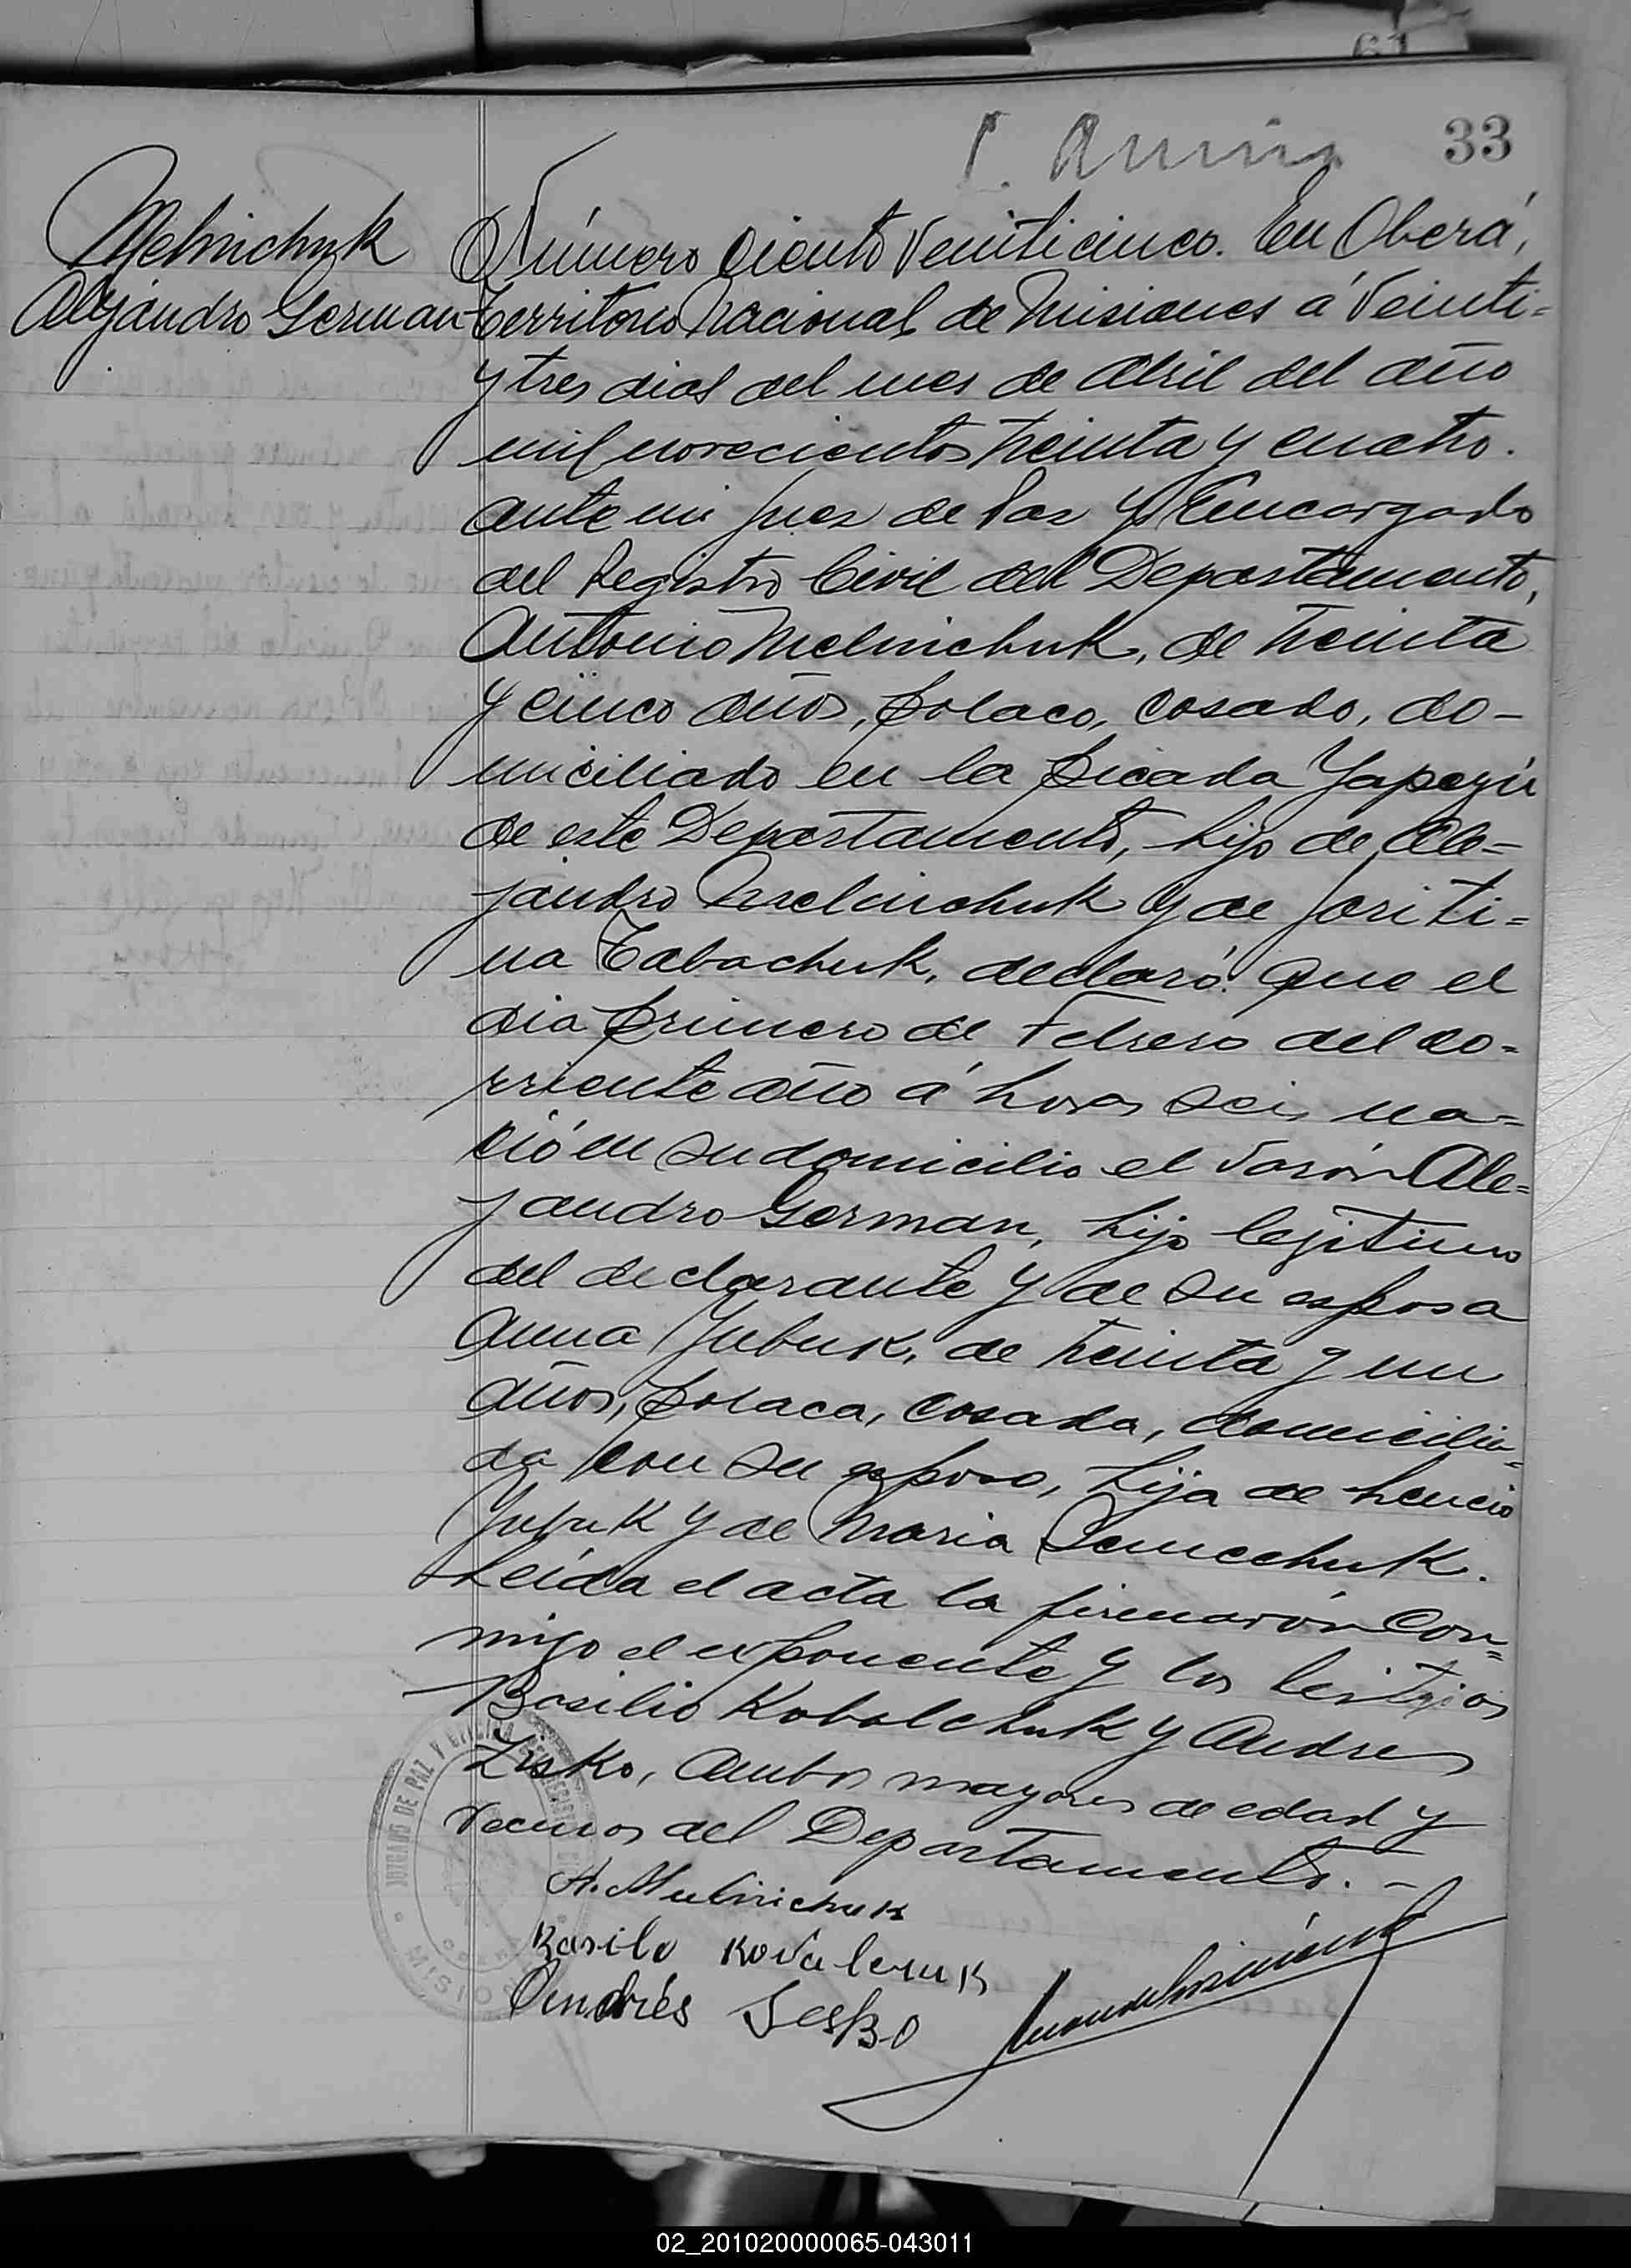 33
Melnichuk
Alejandro German
Número Ciento Veinticinco. En Oberá,
Territorio Nacional de Misiones á Veinti=
y tres dias del mes de Abril del año
mil novecientos treinta y cuatro.
ante mi Juez de Paz y Encargado
del Registro Civil del Departamento,
Antonio Melnichuk, de treinta
y cinco años, polaco, casado, do-
miciliado en la picada Yapeyú
de este Departamento, hijo de Ale=
jandro Melnichuk y de
na Tabachuk, declaró: que el
dia primero de Febrero del co-
rriente año á horas seis na=
ció en su domicilio el varón Ale=
jandro German, hijo legitimo
del declarante y de su esposa
Anna Yubuk, de treinta y un
años, polaca, casada, domicilia=
da con su esposo, hija de
Yubuk y de Maria
Leída el acta la firmarón Con=
migo el exponente y los testigos
Basilio Kobalchuk y Andres
Zisko, ambos mayores de edad y
vecinos del Departamento. -
A. Melnichuk
Basilo Kovalcruk
Andrés Sesko
JUZGADO DE PAZ Y
02_201020000065-043011